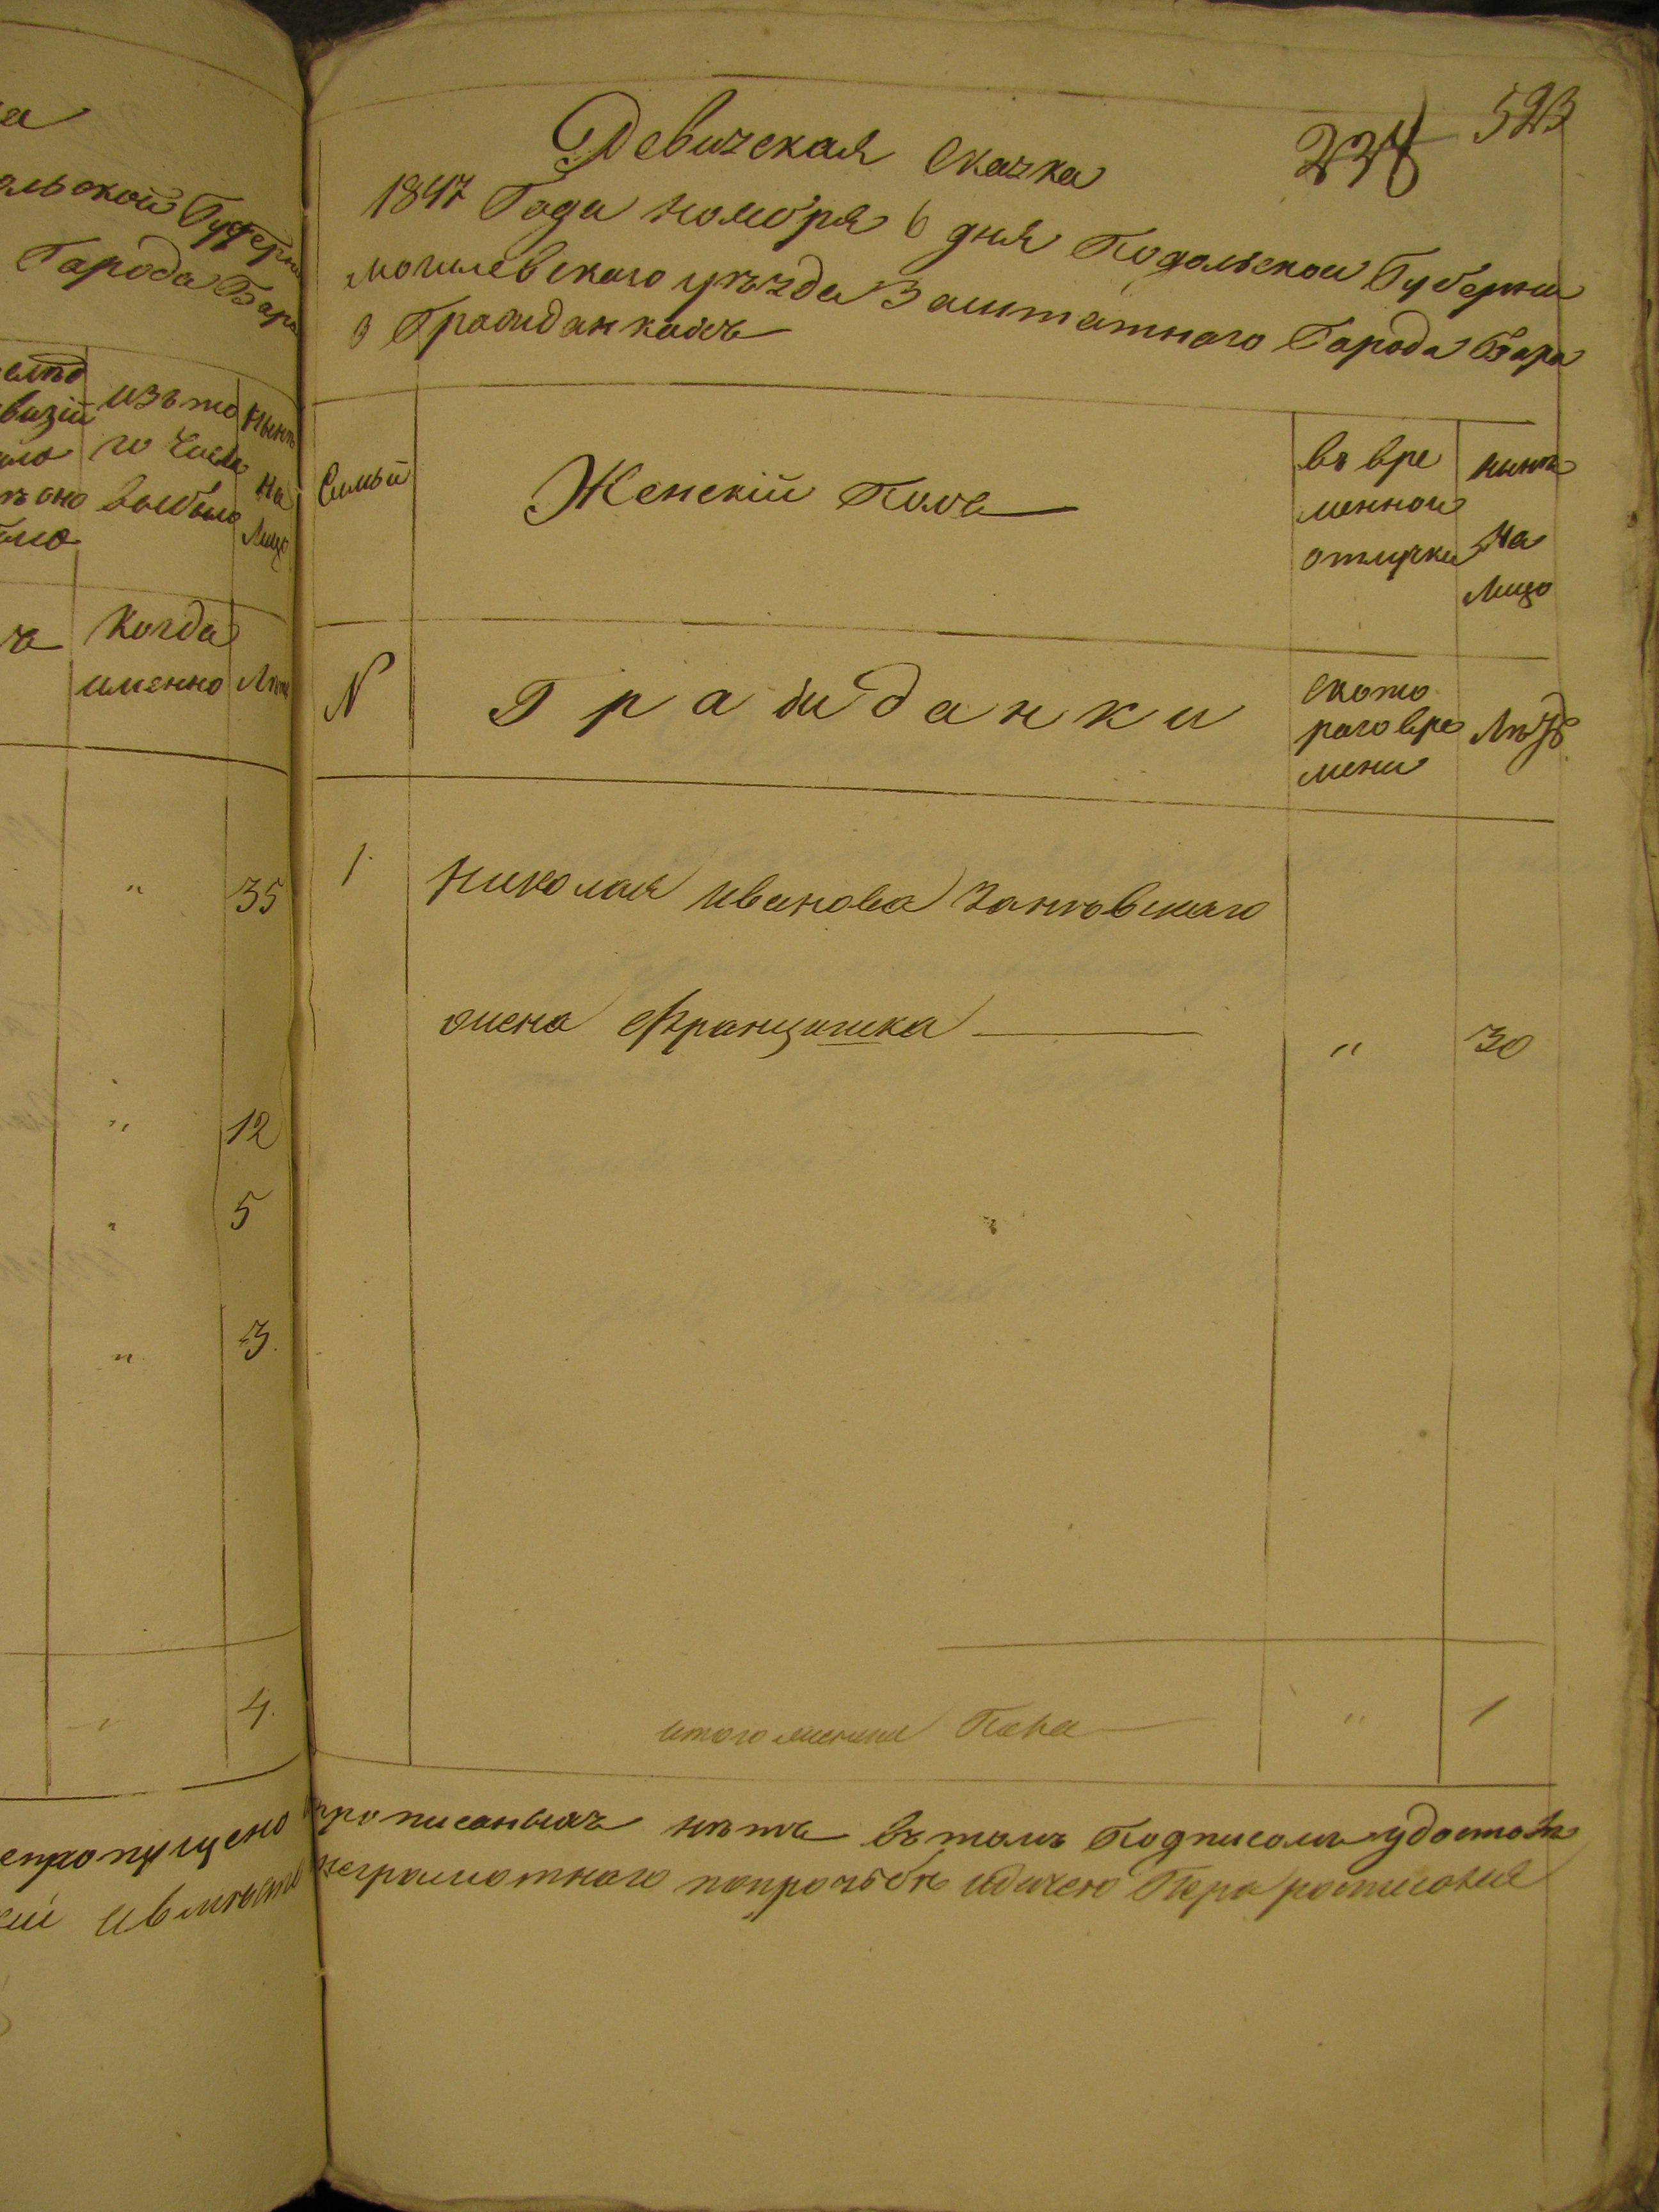 а
ольской Губерни
Города Бара
изъ то
го числа
выбыло
Нынѣ
на
Лицо
Когда
именно
Лѣта
" 35
" 12
" 5
" 3.
" 4.
Девичская Сказка
523
1847 Года ноября 6 дня Подольской Губернии
могилевского уѣзда Заштатного Города Бара
о Гражданкахъ
Семьи
Женскій Полъ
въ вре
менной
отлучки
нынѣ
на
Лицо
N
Гражданки
ското
раго вре
мени
Лѣта
1.
Николая Иванова
жена Францишка
" 30
итого женска Пола " 1
прописаныхъ нѣтъ въ томъ Подписомъ удостов
неграмотного попрозбѣ